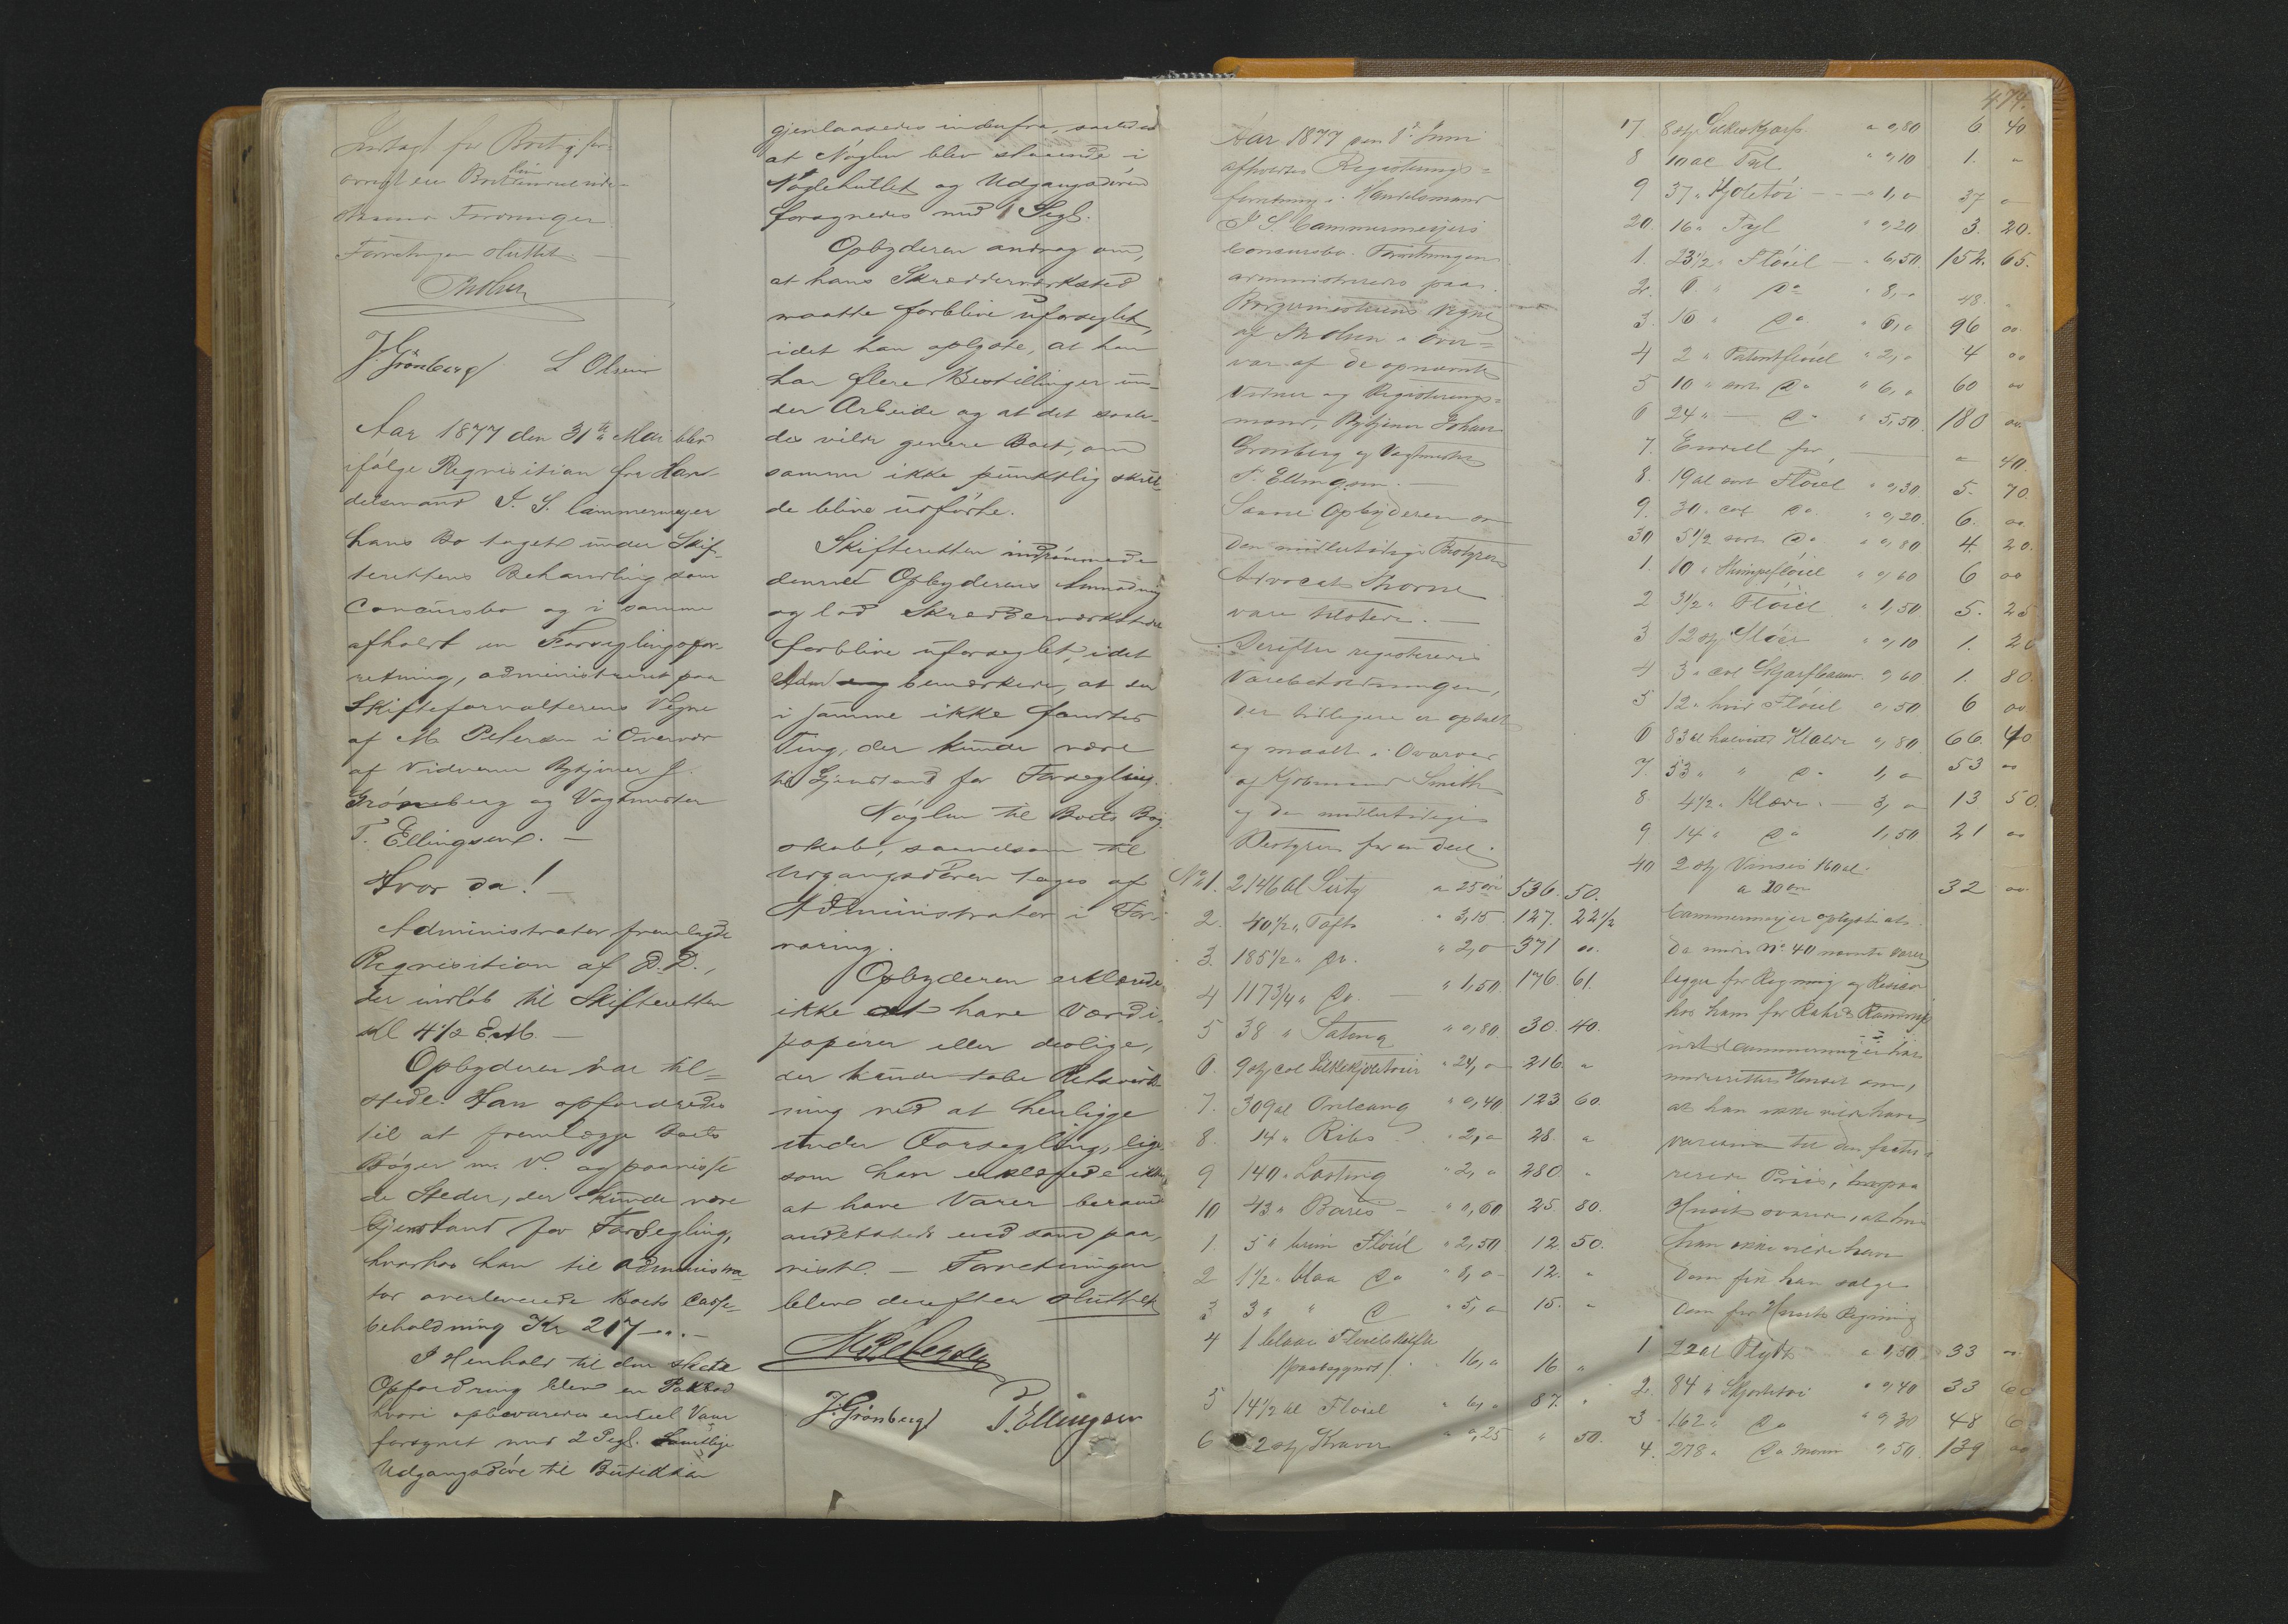 for Boet og for
øvrigt en
Fordringer
Forretningen sluttet
JGrönberg L Olsen
Aar 1877 den 31te Mai blev
ifølge Reqvisition fra Han-
delsmand J. S. Cammermeyer
hans Bo taget under Skif-
terettens Behandling som
Concursbo og i samme
afholdt en Forseglingsfor-
retning, administreret paa
Skifteforvalterens Vegne
af M. Petersen i Overvær
af Vidnerne Bytjener J.
Grönberg og Vagtmester
T. Ellingsen. —
Hvor da! —
Administrator fremlagde
Reqvisition af D. D.,
der indløb til Skifteretten
Kl 4 1/2 EM. —
Opbyderen var til-
stede. Han opfordredes
til at fremlægge Boets
Bøger m. V. og paavise
de Steder, der kunde være
Gjenstand for Forsegling,
hvorhos han til Administra-
tor overleverede Boets Casse-
beholdning Kr 217 — " —
I Henhold til den skete
Opfordring blev en Pakbod
hvori opbevaredes endeel Varer
forsegnet med 2 Segl. Samtlige
Udgangsdøre til Butikken
gjenlaasedes indenfra, saaledes
at Nøglen blev staaende i
Nøglehullet og Udgangsdøren
forsegnedes med 1 Segl.
Opbyderen androg om,
at hans Skredderværksted
maatte forblive uforseglet,
idet han oplyste, at han
har flere Bestillinger un-
der Arbeide og at det saale-
des vilde genere Boet, om
samme ikke punktlig skul-
de blive udførte.
Skifteretten indrømmede
Opbyderens Anmodning
og lod Skredderværkstedet
forblive uforseglet, idet
Adm bemærkede, at der
i samme ikke fandtes
Ting, der kunde være
til Gjenstand for Forsegling.
Nøglen til Boets Bog-
skab, saavelsom til
Udgangsdøren toges af
Administrator i For-
varing.
Opbyderen erklærede
ikke at have Værdi-
papirer eller deslige,
der kunde tabe Retsvirk-
ning ved at henligge
under Forsegling, lige-
som han erklærede ikke
at have Varer beroende
andetsteds end som paa-
vist. — Forretningen
blev derefter sluttet
MPetersen
J.Grönberg T.Ellingsen
474.
Aar 1877 den 8de Juni
afholdtes Registrerings-
forretning i Handelsmand
J S. Cammermeyers
Concursbo. Forretningen
administreredes paa
Borgermesterens Vegne
af Th Olsen i Over-
vær af de opnævnte
Vidner og Registrerings-
mænd, Bytjener Johan
Grönberg og Vagtmester
T. Ellingsen. —
Saavel Opbyderen som
den midlertidige Bestyrer
Advocat Thorne
vare tilstede. —
Derefter registreredes
Varebeholdningen,
der tidligere er optalt
og maalt i Overvær
af Kjøbmand Smith
og den midlertidige
Bestyrer for en Deel.
No 1. 2146 Al Sirtz a 25 øre 536. 50.
2. 40 1/2 " Taft " 3,15 127. 22 1/2
3. 185 1/2 " Do. " 2,0 371 00.
4 117 3/4 " Do. — " 1,50 176. 61.
5 38 " Sateng " 0,80 30. 40.
6. 9 st col Silkekjoletøier " 24,0 216. "
7. 309 al Orleang " 0,40 123 60.
8. 14 " Ribs " 2,0 28. "
9 140 " Lasting " 2,0 280. "
10 43 " Baréd — " 0,60 25. 80.
1. 5 " brun Fløiel " 2,50 12 50.
2 1 1/2 " blaa Do " 8,0 12. "
3 3 " " Do " 5,0 15. "
4 1 blaa
/paabegyndt/. " 16,0 16 "
5 14 1/2 al Fløiel " 6,0 87. "
6 2 st Kraver " 0,25 " 50.
17 8 st Silkeskjærf. a 0,80 6 40
8 10 al Tyl " 0,10 1. "
9 37 " Kjoletøi — " 1,0 37 "
20. 16 " Tyl " 0,20 3. 20.
1. 23 1/2 " Fløiel — " 6,50. 152. 65.
2. 6. " Do " 8,0 48. "
3. 16 " Do " 6,0 96 00
4 2 " Patentfløiel " 2,0 4 00
5 10 " sort Do " 6,0 60 00
6 24 " — Do " 5,50. 180 00.
7. Endeel for, — " 40.
8. 19 al sort Fløiel " 0,30 5. 70.
9. 30 " col Do. " 0,20. 6. 00
30 5 1/2 sort Do " 0,80 4. 20.
1. 10 " Skimpefløiel " 0,60 6 00
2 3 1/2 " Fløiel " 1,50 5. 25
3 12 st Slöer " 0,10 1. 20
4 3 " col Skjærfbaand. 0,60 1. 80.
5 12 " hvid Fløiel 0,50 6 00
6 83 al halvuld Klæde 0,80 66. 40
7. 53 " " Do 1,0 53 00
8. 4 1/2 " Klæde. — 3,0 13 50.
9 14 " Do 1,50 21 00
40 2 st 160 al.
a 20 øre 32 00
Cammermeyer oplyste at
de under No 40 nævnte Varer
ligger for Regning og Risico
hos ham for
at Cammermeyer har
underrettet Huset om,
at han ikke vilde have
Varerne til den faktu-
rerede Priis, hvorpaa
Huset svarede, at hvis
han ikke vilde have
dem fik han sælge
dem for Husets Regning
1 22 al Plyds a 1,50 33 00.
2. 84 " Skjortetøi " 0,40 33 60
3. 162 " Do " 0,30 48 60
4. 278 " Do 0,50. 139 00